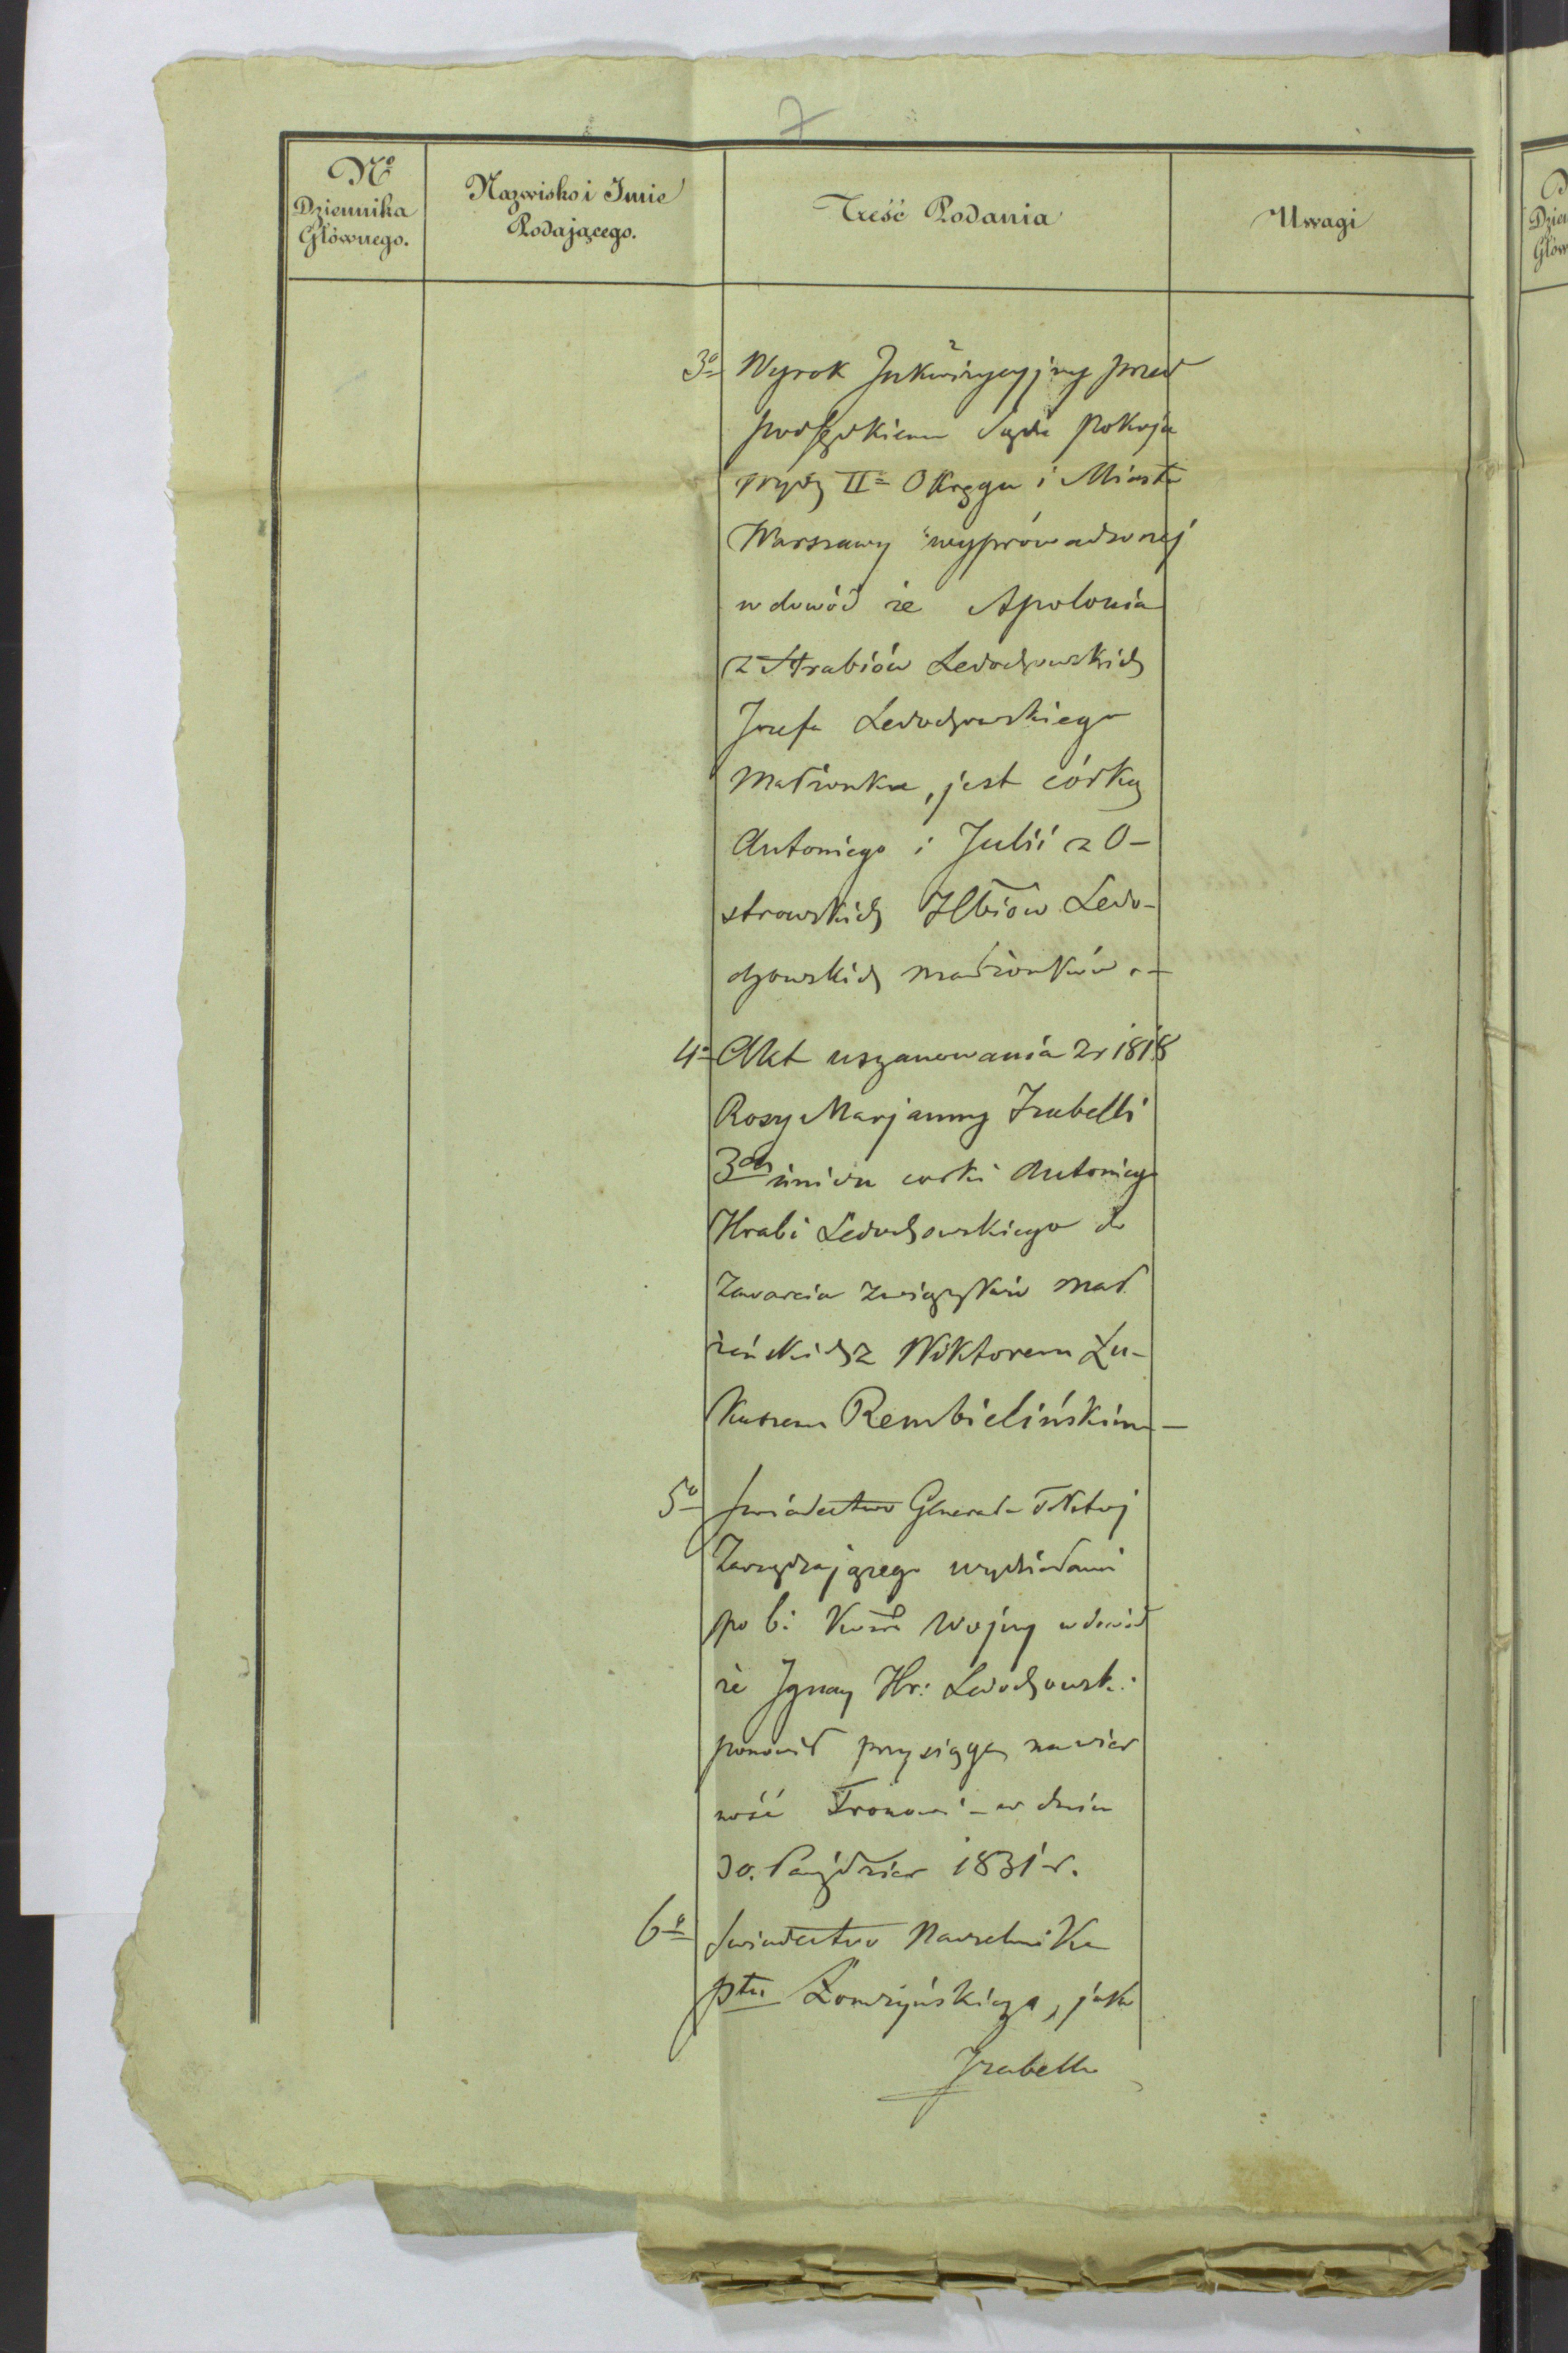 7
No Dziennika Głównego.
Nazwisko i Imie Podającego.
Treść Podania
Uwagi
3o Wyrok Inkwizycyjny przed
podsędkiem Sądu Pokoju
Wydz IIo Okręgu i Miasta
Warszawy wyprowadzonej
w dowód że Apolonia
z Hrabiów Ledochowskich
Jozefa Ledochowskiego
Małżonka, jest córką
Antoniego i Julii z O-
strowskich Hbiów Ledo-
chowskich małżonków.-
4o Akt uszanowania z r 1818
Rozy Marjanny Izabelli
3ch imion corki Antoniego
Hrabi Ledochowskiego do
Zawarcia związków mał
żeńskich z Wiktorem Łu-
kaszem Rembielińskim-
5o Swiadectwo Generała
Zarządzającego wydziałami
po b: Wojny w dowód
że Ignacy Hr: Ledochowski
ponowił przysięgę na wier
ność Tronowi - w dniu
30. Paździer 1831 r.
6o Swiadectwo Naczelnika
ptu Łomżyńskiego, jako
Izabella